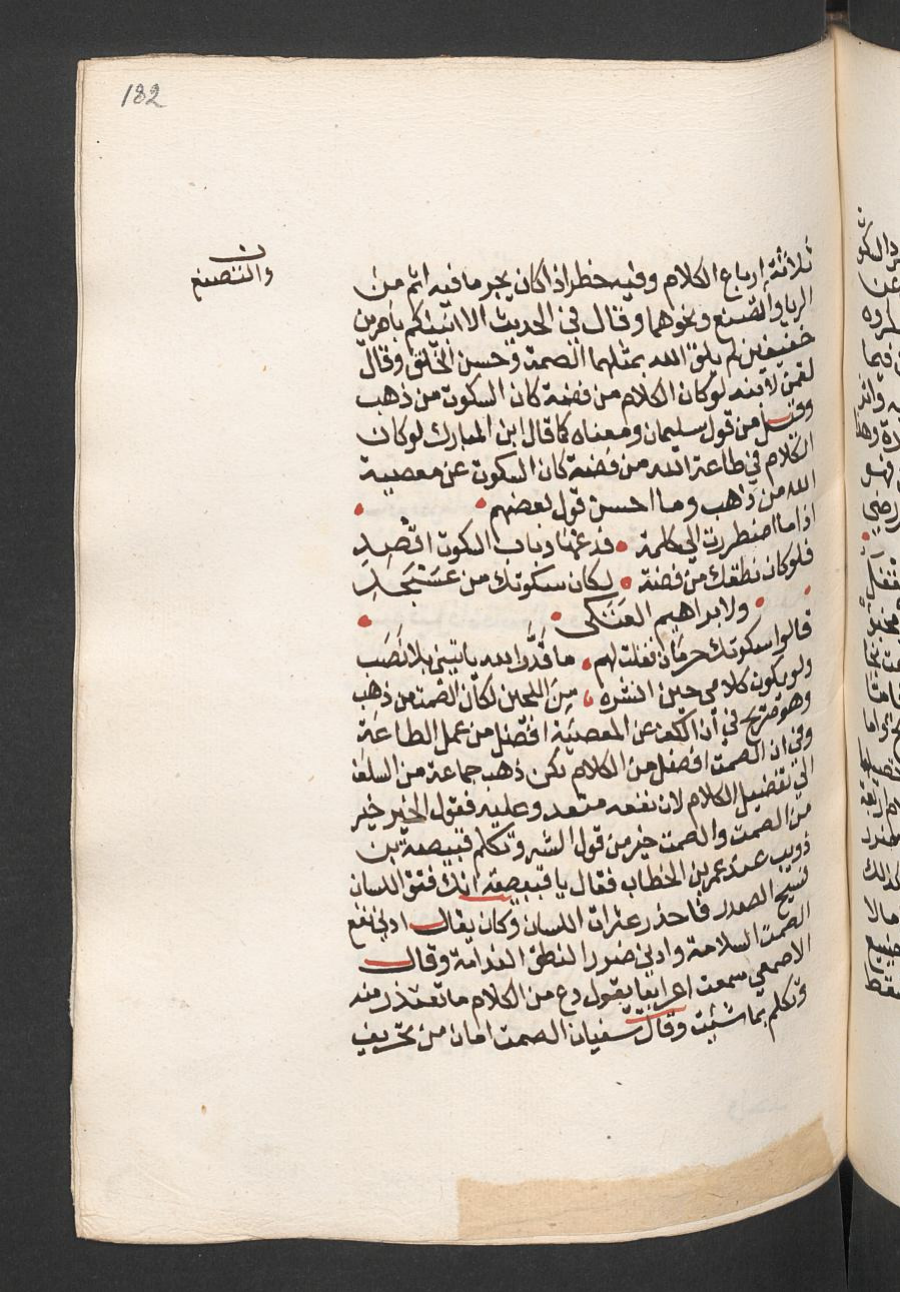 182
ن
والتصنع
ثلاثة ارباع الكلام وفيه خطر اذا كان يجر ما فيه اثم من
الريا والتصنع ونحوهما وقال في الحديث الا انبئكم بامرين
خفيفين لم يلق الله بمثلهما الصمت وحسن الخلق وقال
لقمن لابنه لو كان الكلام من فضة كان السكوت من ذهب
وقيل من قول سليمان ومعناه كما قال ابن المبارك لو كان
الكلام في طاعة الله من فضة كان السكوت عن معصية
الله من ذهب وما احسن قول بعضهم
اذا ما اضطررت الى كلمة • فدعها وباب السكوت اقصد
فلو كان نطقك من فضة • لكان سكوتك من عسجد
• ولابراهيم العتكي •
قالوا سكوتك حرمان فقلت لهم • ما قدر الله ياتيني بلا نصب
ولو يكون كلامي حين انشره • من اللجين لكان الصمت من ذهب
وهو صريح في ان الكف عن المعصية افضل من عمل الطاعة
وفي ان الصمت افضل من الكلام لكن ذهب جماعة من السلف
الى تفضيل الكلام لان نفعه متعد وعليه فقول الخير خير
من الصمت والصمت خير من قول الشر وتكلم قبيصة بن
ذويب عند عمر بن الخطاب فقال يا قبيصة انك فتق اللسان
فسيح الصدر فاحذر عثرات اللسان وكان يقال ادنى نفع
الصمت السلامة وادنى ضرر النطق الندامة وقال
الاصمعي سمعت اعرابيا يقول دع من الكلام ما تعتذر منه
وتكلم بما شئت وقال سفيان الصمت امان من تحريف